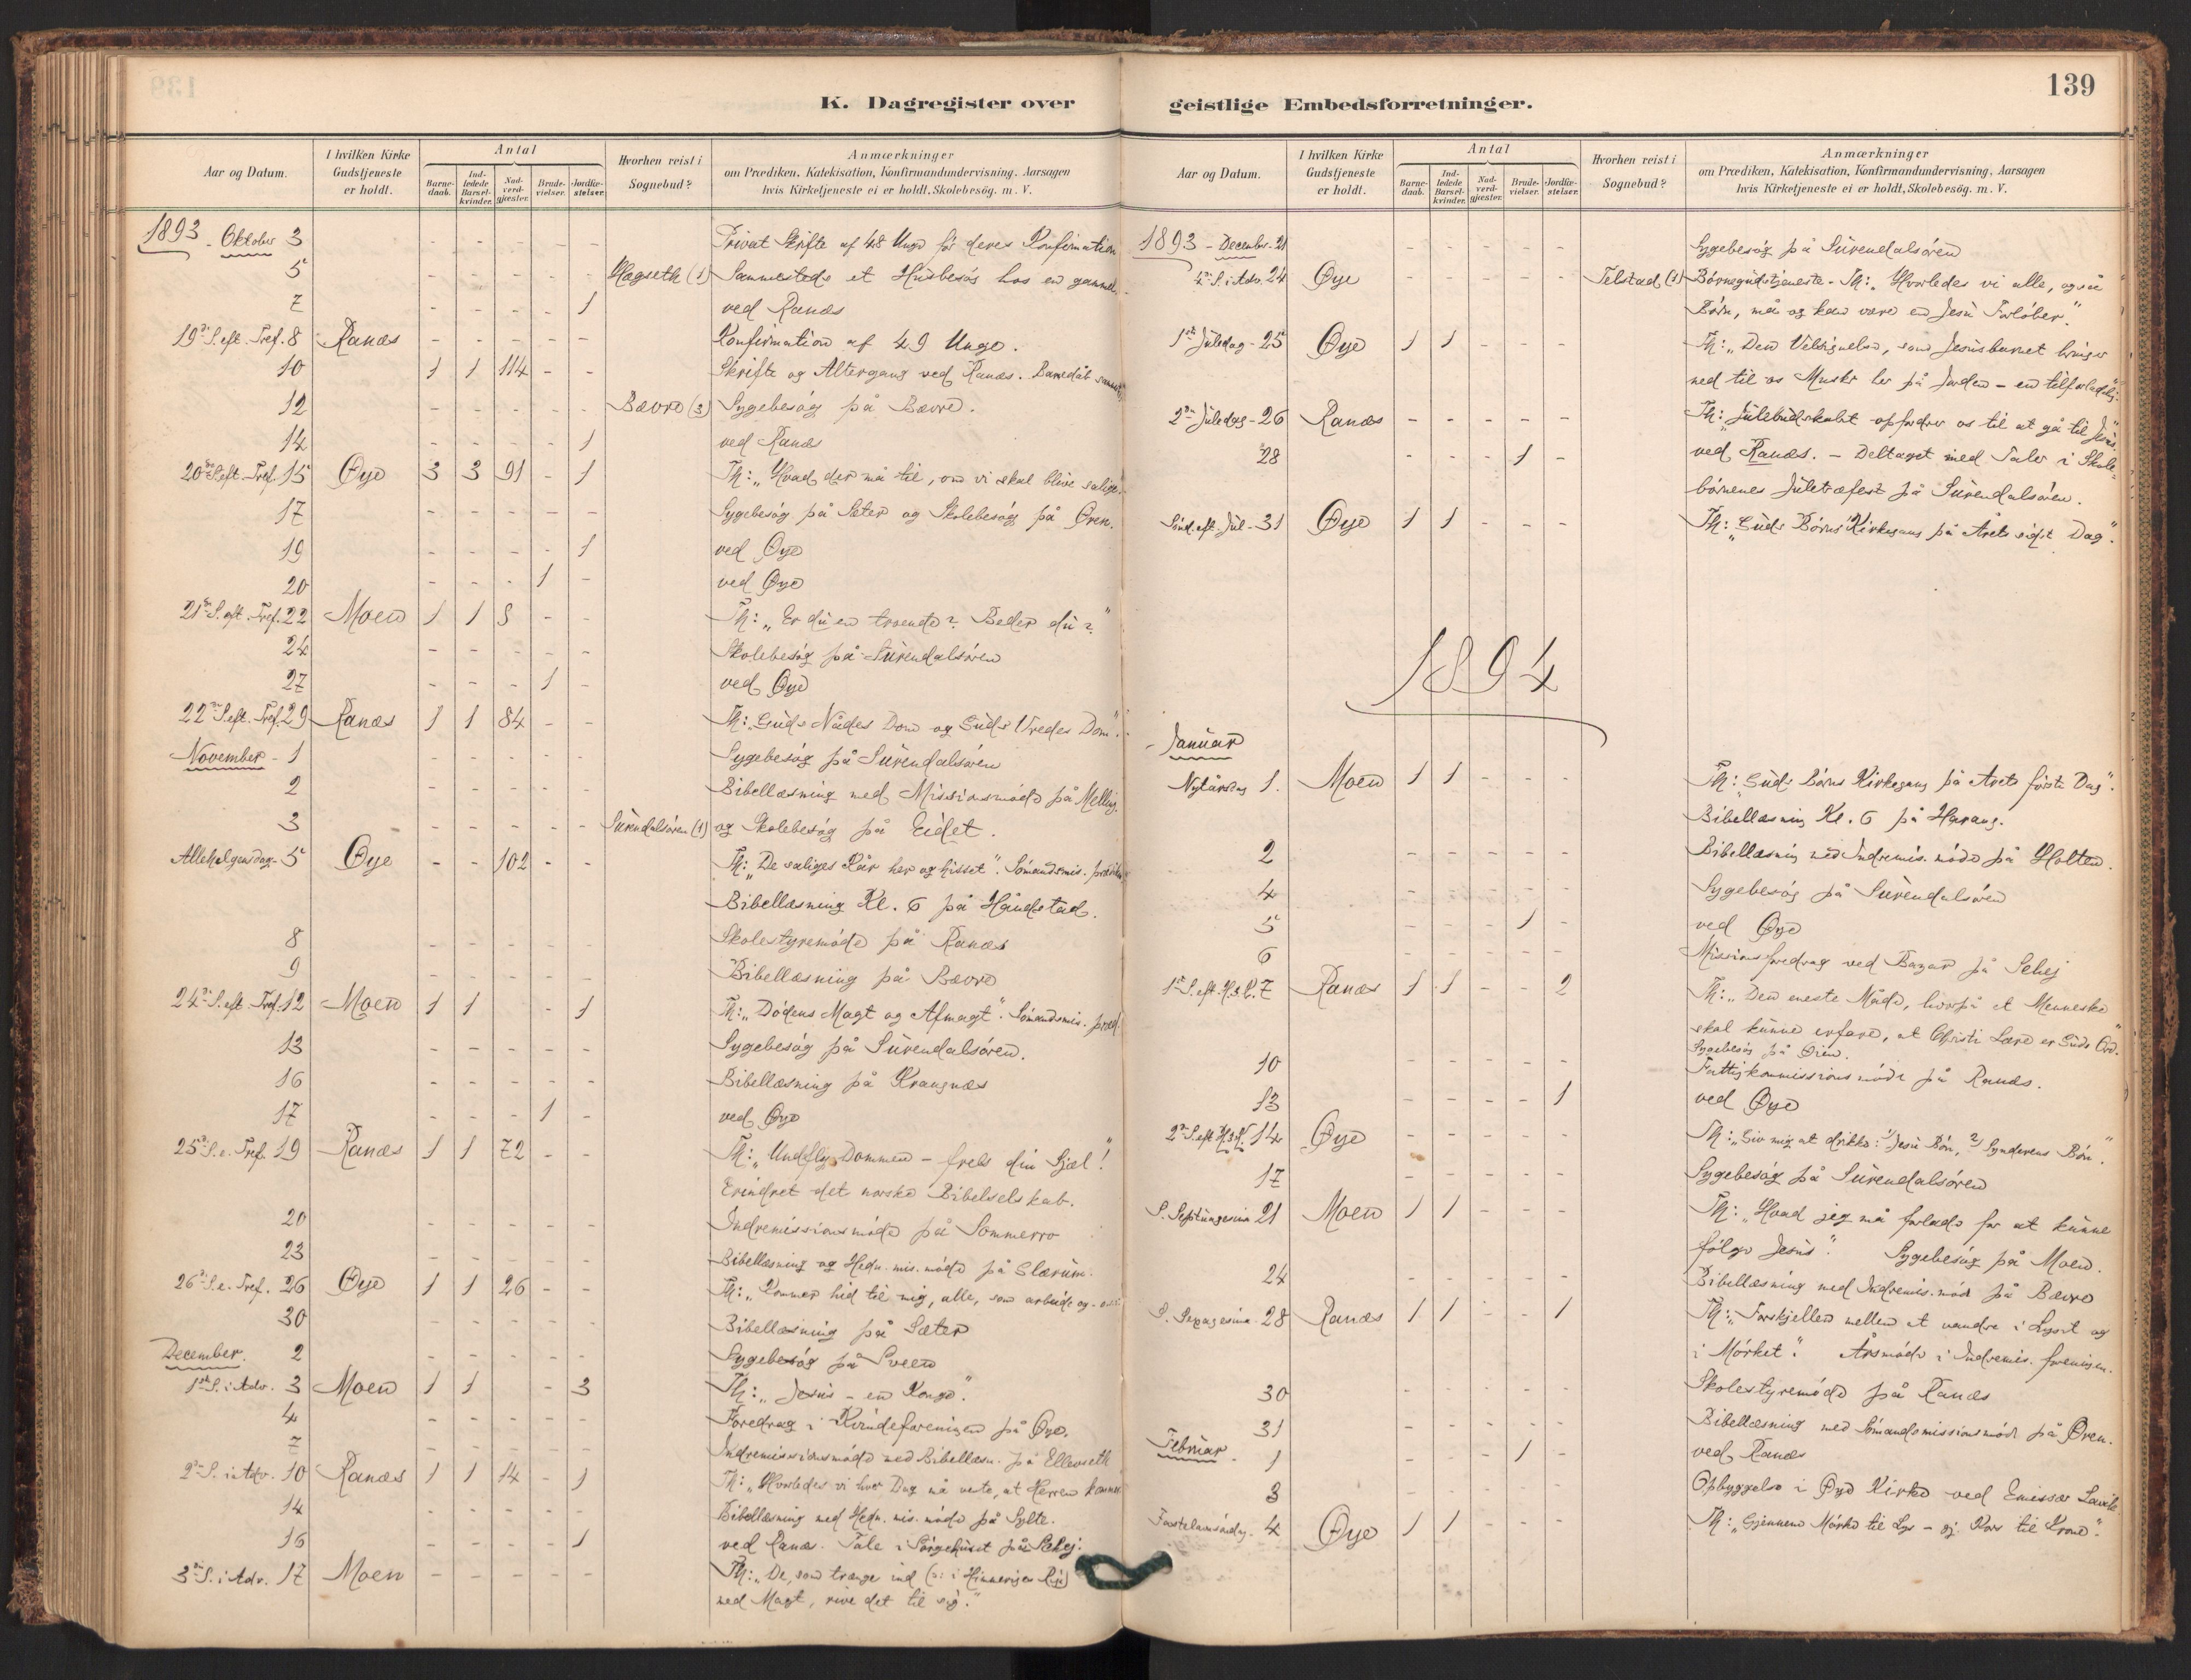 139
K. Dagregister over geistlige Embedsforretninger.
Aar og Datum. I hvilken Kirke Gudstjeneste er holdt. Antal Barne-daab. Ind-ledede Barsel-kvinder. Nad-verd-gjæster. Brude-vielser. Jordfæ-stelser. Hvorhen reist i Sognebud? Anmærkninger om Prædiken, Katekisation, Konfirmandundervisning, Aarsagen hvis Kirketjeneste ei er holdt, Skolebesøg. m. V.
1893 - Oktober 3 - - - - - Privat Skrifte af 48 Unge før deres Konfirmation
5 - - - - - Hagseth (1) Sammesteds et Husbesøg hos en gammel
7 - - - - 1 ved Ranæs
19de S. eft. Tref. 8 Ranæs - - - - - Konfirmation af 49 Unge.
10 1 1 114 - - Skrifte og Altergang ved Ranæs. Barnedåb
12 - - - - - Bævre (3) Sygebesøg på Bævre.
14 - - - - 1 ved Ranæs
20de S. eft. Tref. 15 Øye 3 3 91 - 1 Th: "Hvad der må til, om vi skal blive salige."
17 - - - - - Sygebesøg på Sæter og Skolebesøg på Øren.
19 - - - - 1 ved Øye
20 - - - 1 - ved Øye
21de S. eft. Tref. 22 Moen 1 1 8 - - Th: "Er du en troende? Beder du?"
24 - - - - - Skolebesøg på Surendalsøren
27 - - - 1 - ved Øye
22de S. eft. Tref. 29 Ranæs 1 1 84 - - Th: "Guds Nådes Dom og Guds Vredes Dom".
November - 1 - - - - - Sygebesøg på Surendalsøren
2 - - - - - Bibellæsning med Missionsmøde på
3 - - - - - Surendalsøren (1) og Skolebesøg på Eidet.
Allehelgensdag - 5 Øye - - 102 - - Th: "De saliges Kår her og hisset". Sømandsmis.
Bibellæsning Kl. 6 på Håndstad.
8 - - - - - Skolestyremøde på Ranæs
9 - - - - - Bibellæsning på Bævre
24de S. eft. Tref. 12 Moen 1 1 - 1 Th: "Dødens Magt og Afmagt". Sømandsmis. præd.
13 - - - - - Sygebesøg på Surendalsøren.
16 - - - - - Bibellæsning på Krangnæs
17 - - - 1 - ved Øye
25de S. e. Tref. 19 Ranæs 1 1 72 - - Th: "Undfly Dommen - frels din Sjæl!"
Erindret det norske Bibelselskab.
20 - - - - - Indremissionsmøde på Sommerro
23 - - - - - Bibellæsning og Hedn. mis. møde på Glærum.
26de S. e. Tref. 26 Øye 1 1 26 - - Th: "Kommer hid til mig, alle, som arbeide og
30 - - - - - Bibellæsning på Sæter
December. 2 - - - - - Sygebesøg på Sveen
1ste S. i Adv. 3 Moen 1 1 - 3 Th: "Jesus - en Konge."
4 - - - - - Foredrag i Kvindeforeningen på Øye.
7 - - - - - Indremissionsmøde med Bibellæsn. på Ellevseth
2den S. i Adv. 10 Ranæs 1 1 14 - 1 Th: "Hvorledes vi hver Dag må vente, at Herren kommer
14 - - - - - Bibellæsning med Hedn. mis. møde på Sylte.
16 - - - - 1 ved Ranæs. Tale i Sørgehuset på
3die S. i Adv. 17 Moen - - - - - Th: "De, som trænge ind (ɔ: i Himmeriges Rige)
med Magt, rive det til sig."
Aar og Datum. I hvilken Kirke Gudstjeneste er holdt. Antal Barne-daab. Ind-ledede Barsel-kvinder. Nad-verd-gjæster. Brude-vielser. Jordfæ-stelser. Hvorhen reist i Sognebud? Anmærkninger om Prædiken, Katekisation, Konfirmandundervisning, Aarsagen hvis Kirketjeneste ei er holdt, Skolebesøg. m. V.
1893 - Decembr. 21 - - - - - Sygebesøg på Surendalsøren
4de S. i Adv. 24 Øye - - - - - Telstad (1) Børnegudstjeneste - Th: "Hvorledes vi alle, også
Børn, må og kan være en Jesu Forløber."
1ste Juledag - 25 Øye 1 1 - - - Th: "Den Velsignelse, som Jesusbarnet bringer
ned til os Mskr her på Jorden - en
2den Juledag - 26 Ranæs - - - - - Th: "Julebudskabet opfordrer os til at gå til Jesus"
28 - - - 1 - ved Ranæs. - Deltaget med Taler i Skole-
børnenes Juletræfest på Surendalsøren.
Sønd. eft. Jul - 31 Øye 1 1 - - - Th: "Guds Børns Kirkegang på Årets sidste Dag".
1894
Januar
Nytårsdag 1. Moen 1 1 - - - Th: "Guds Børns Kirkegang på Årets første Dag".
Bibellæsning Kl. 6 på Harang.
2 - - - - - Bibellæsning med Indremis. møde på Holten.
4 - - - - - Sygebesøg på Surendalsøren
5 - - - 1 - ved Øye
6 Missionsforedrag ved Bazar på
1ste S. eft. H. 3 K. 7 Ranæs 1 1 - - 2 Th: "Den eneste Måde, hvorpå et Menneske
skal kunne erfare, at Christi Lære er Guds Ord."
Sygebesøg på Øien.
10 - - - - - Fattigkommissionsmøde på Ranæs.
13 - - - - 1 ved Øye
2den S. eft. H. 3 K. 14 Øye - - - - - Th: "Giv mig at drikke: 1) Jesu Bøn, 2) Synderens Bøn".
17 - - - - - Sygebesøg på Surendalsøren
S. Septuagesima 21 Moen 1 1 - - - Th: "Hvad jeg må forlade for at kunne
følge Jesus". Sygebesøg på Moen.
24 - - - - - Bibellæsning med Indremis. møde på Bævre
S. Sexagesima 28 Ranæs 1 1 - - 1 Th: "Forskjellen mellem at vandre i Lyset og
i Mørket". Årsmøde i Indremis. foreningen.
30 - - - - - Skolestyremøde på Ranæs
31 - - - - - Bibellæsning med Sømandsmissionsmøde på Øren.
Februar. 1 - - - 1 - ved Ranæs
3 - - - - - Opbyggelse i Øye Kirke ved Emissær
Fastelavnssøndg. 4 Øye 1 1 - - - Th: "Gjennem Mørke til Lys - gj. Kors til Krone".